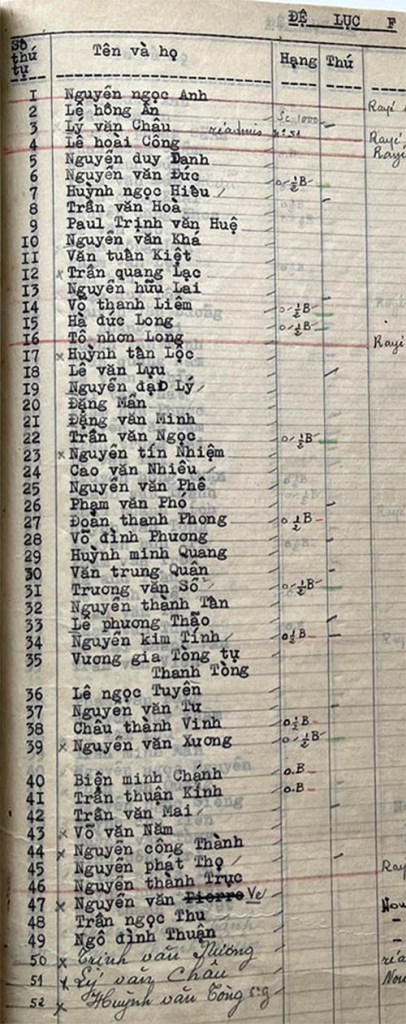 ĐỆ LỤC F
Số thứ tự Tên và họ Hạng Thứ
I Nguyễn ngọc Anh
2 Lê hồng Ấn Rayé
3 Lý văn Châu réadmis
4 Lê hoài Công Rayé
5 Nguyễn duy Danh Rayé
6 Nguyễn văn Đức
7 Huỳnh ngọc Hiếu 0-½B
8 Trần văn Hoà
9 Paul Trịnh văn Huệ
IO Nguyễn văn Khá
II Văn tuấn Kiệt
I2 x Trần quang Lạc
I3 Nguyễn hữu Lai
I4 Võ thanh Liêm 0-½B
I5 Hà đức Long 0-½B
I6 Tô nhơn Long Rayé
I7 x Huỳnh tấn Lộc
I8 Lê văn Lựu
I9 Nguyễn đạo Lý
20 Đặng Mẫn
2I Đặng văn Minh
22 Trần văn Ngọc 0-½B
23 x Nguyễn tín Nhiệm
24 Cao văn Nhiều
25 Nguyễn văn Phê
26 Phạm văn Phó
27 Đoàn thanh Phong 0 ½ B
28 Võ đình Phương
29 Huỳnh minh Quang
30 Văn trung Quân
3I Trương văn Số 0-½B
32 Nguyễn thành Tân
33 Lê phương Thảo
34 Nguyễn kim Tính 0½B
35 Vương gia Tòng tự
Thanh Tòng
36 Lê ngọc Tuyên
37 Nguyễn văn Tư
38 Châu thành Vinh 0½B
39 x Nguyễn văn Xương 0-½B
40 Biện minh Chánh 0.B
4I Trần thuận Kính 0.B
42 Trần văn Mai
43 x Võ văn Năm
44 x Nguyễn công Thành
45 Nguyễn phát Thọ Ray
46 Nguyễn thành Trực
47 x Nguyễn văn Pierre Ve Nou
48 Trần ngọc Thu
49 Ngô đình Thuận
50 x Trịnh văn Mương réa
51 x Lý văn Châu Nou
52 x Huỳnh văn Tòng